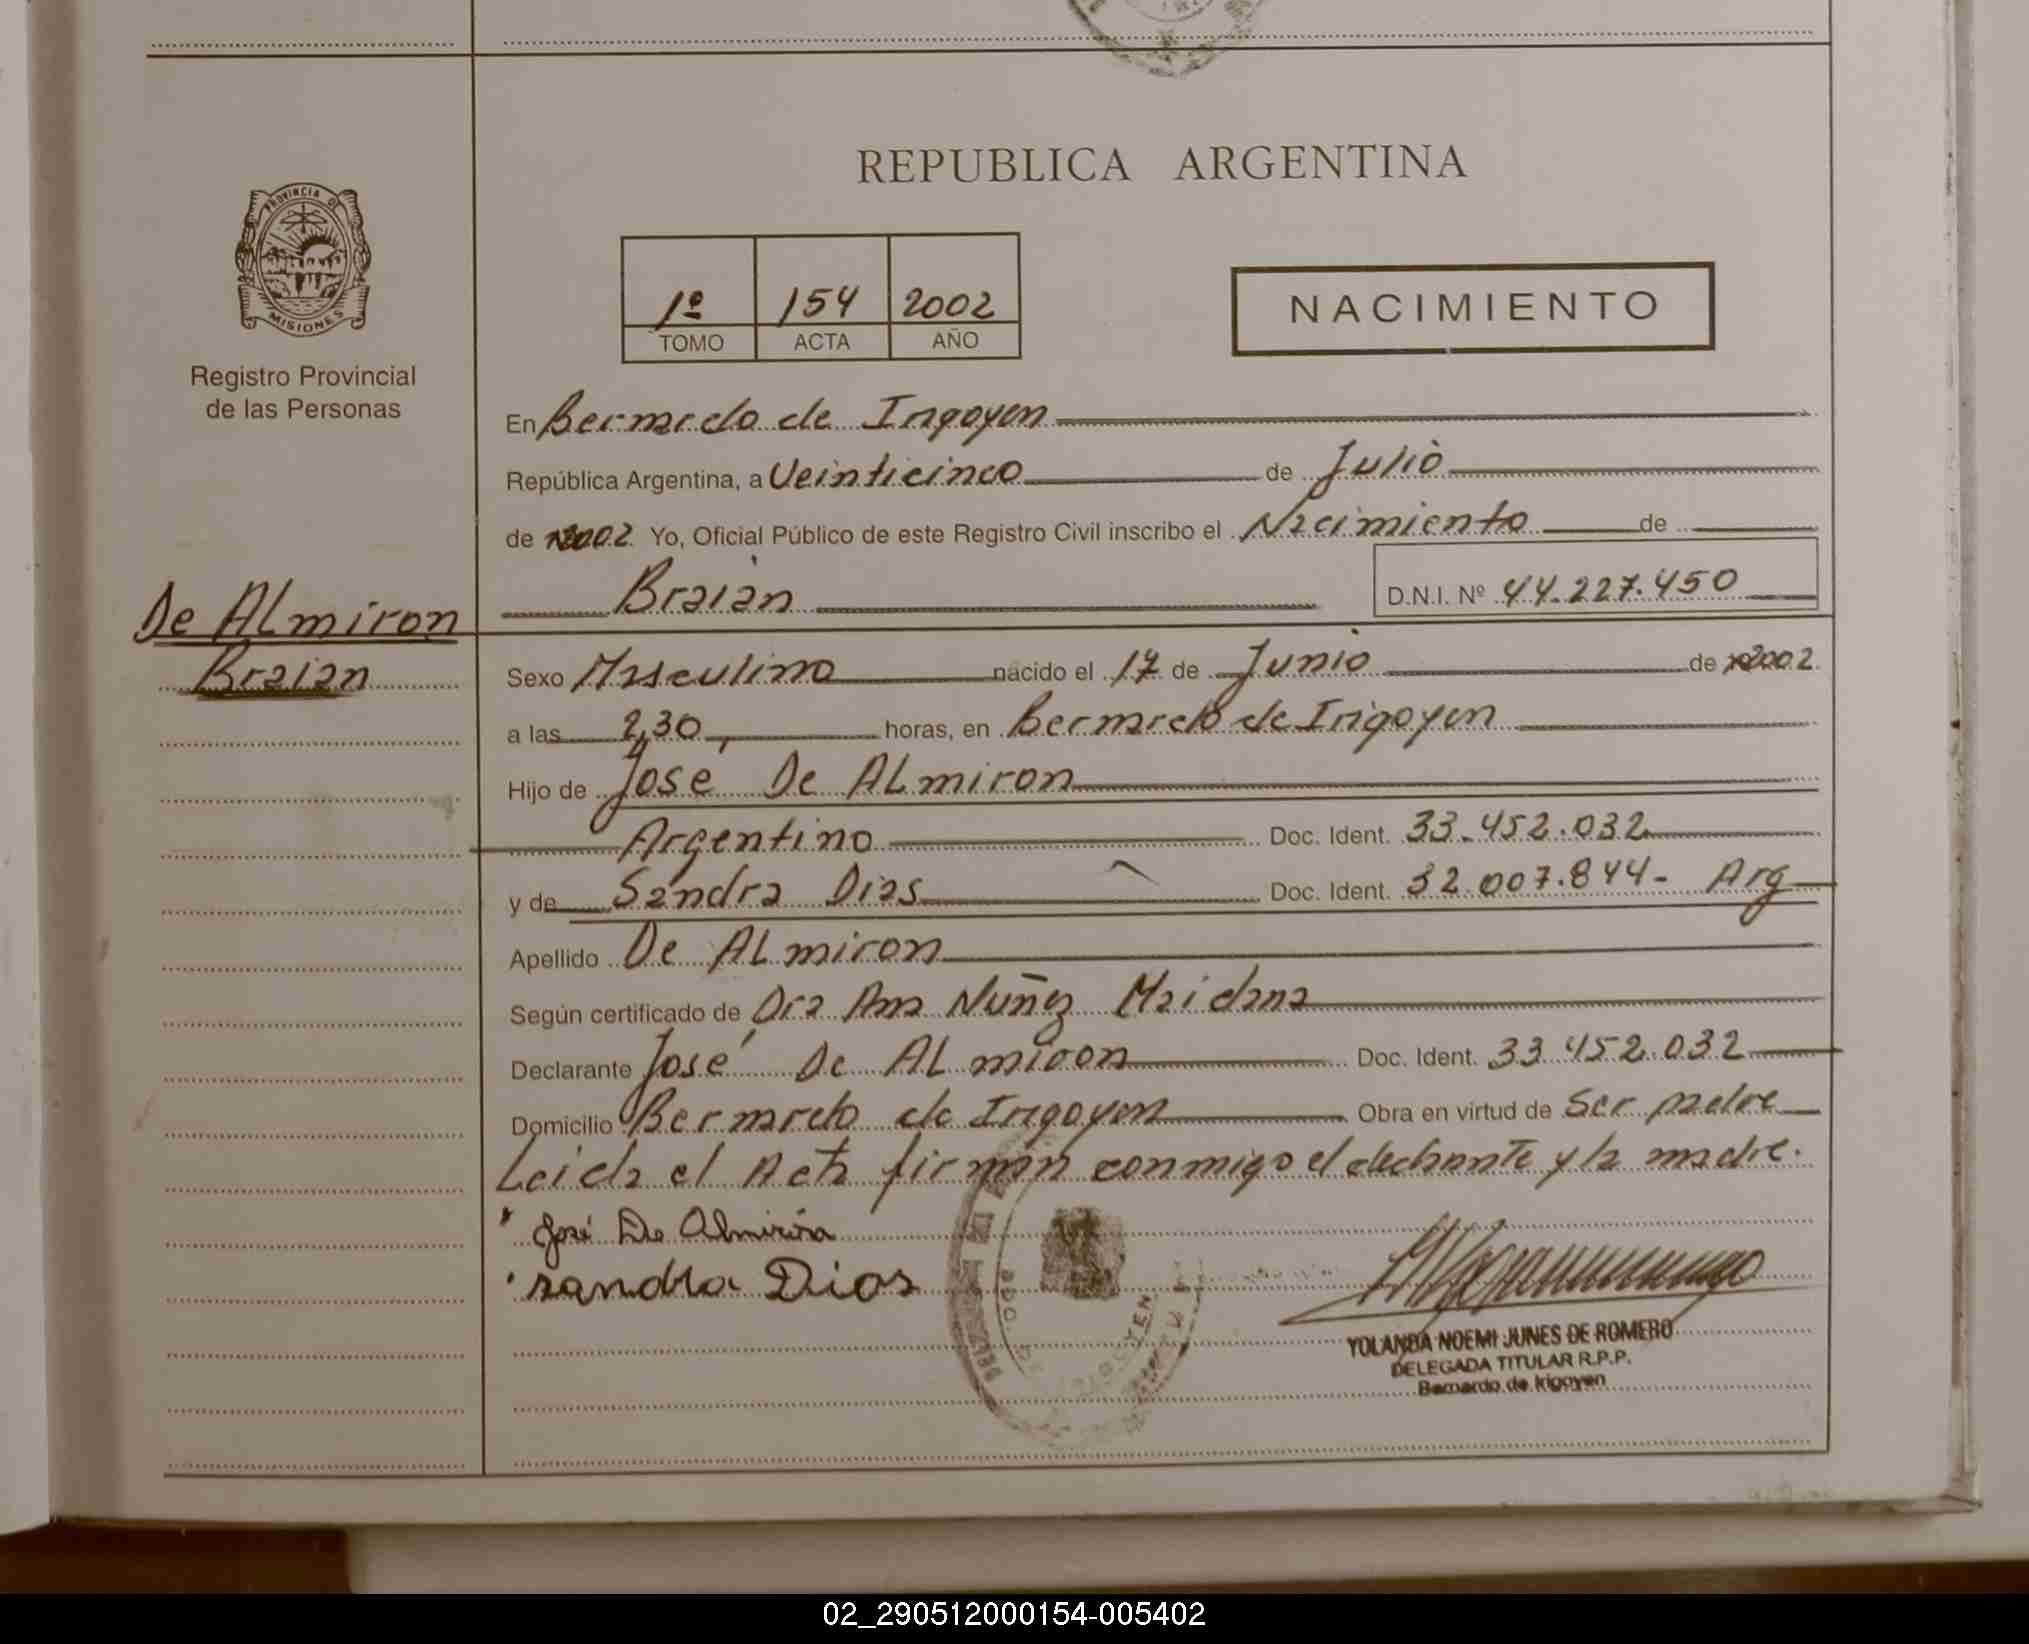 REPUBLICA ARGENTINA
PROVINCIA DE
MISIONES
Registro Provincial
de las Personas
1º 154 2002
TOMO ACTA AÑO
NACIMIENTO
En Bernardo de Irigoyen
República Argentina, a Veinticinco de Julio
de 2002 Yo, Oficial Público de este Registro Civil inscribo el Nacimiento de
Braian D.N.I. Nº 44.227.450
De ALmiron
Braian
Sexo Masculino nacido el 17 de Junio de 2002
a las 2,30 horas, en Bernardo de Irigoyen
Hijo de José De ALmiron
Argentino Doc. Ident. 33.452.032
y de Sandra Dias Doc. Ident. 32.007.844- Arg
Apellido De ALmiron
Según certificado de Dra Ana Nuñez Maidana
Declarante José De ALmiron Doc. Ident. 33 452.032
Domicilio Bernardo de Irigoyen Obra en virtud de Ser padre
Leida el Acta firman conmigo el declarante y la madre.
José De Almirón
sandra Dias
YOLANDA NOEMI JUNES DE ROMERO
DELEGADA TITULAR R.P.P.
Bernardo de Irigoyen
02_290512000154-005402